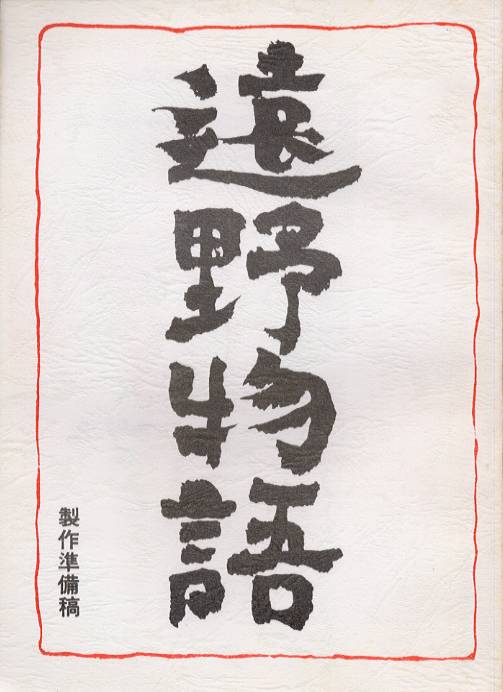 遠野物語
製作準備稿